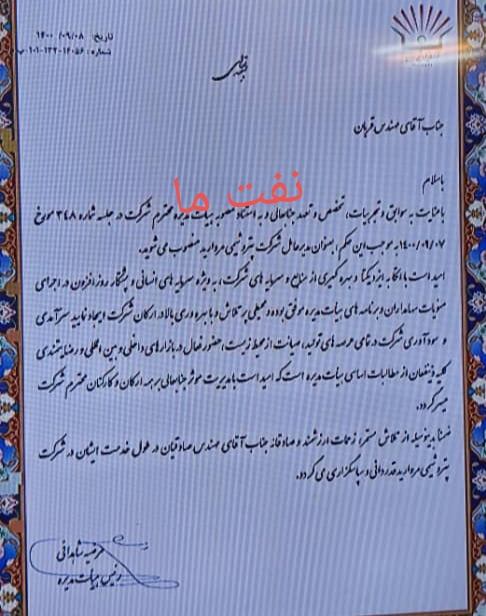 تاریخ: ۱۴۰۰/۰۹/۰۸
شماره: ۱۴۰۵۶-۱۳۲-۱۰۱-ب
بسمه تعالی
جناب آقای مهندس قربان
باسلام
نفت ما
باعنایت به سوابق و تجربیات، تخصص و تعهد جنابعالی و به استناد مصوبه هیات مدیره محترم شرکت در جلسه شماره ۳۴۸ مورخ
۱۴۰۰/۰۹/۰۷ به موجب این حکم، بعنوان مدیرعامل شرکت پتروشیمی مروارید منصوب می شوید.
امید است با اتکا به ایزد یکتا و بهره گیری از منابع و سرمایه های شرکت، به ویژه سرمایه های انسانی و پشتکار روزافزون در اجرای
منویات سهامداران و برنامه های هیات مدیره موفق بوده و محیطی پر تلاش و با بهره وری بالا در ارکان شرکت ایجاد نمایید سرآمدی
و سودآوری شرکت در تمامی عرصه های تولید، صیانت از محیط زیست، حضور فعال در بازارهای داخلی و بین المللی و رضایتمندی
کلیه ذینفعان از مطالبات اساسی هیات مدیره است که امید است با مدیریت موثر جنابعالی بر همه ارکان و کارکنان محترم شرکت
میسر گردد.
ضمنا بدینوسیله از تلاش مستمر، زحمات ارزشمند و صادقانه جناب آقای مهندس صادقیان در طول خدمت ایشان در شرکت
پتروشیمی مروارید قدردانی و سپاسگزاری می گردد.
مرضیه شاهدائی
رئیس هیات مدیره